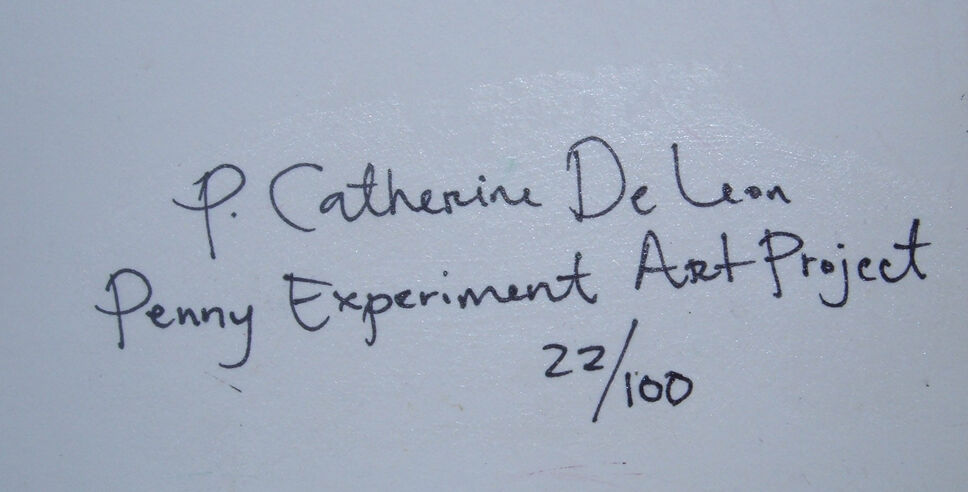 P. Catherine De Leon
Penny Experiment Art Project
22/100